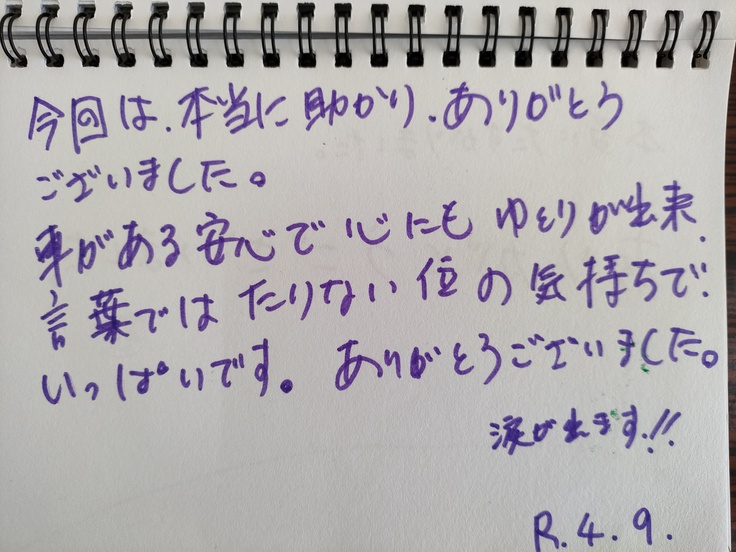 今回は、本当に助かり、ありがとう
ございました。
車がある安心で心にもゆとりが出来、
言葉ではたりない位の気持ちで、
いっぱいです。ありがとうございました。
涙が出ます!!
R.4.9.